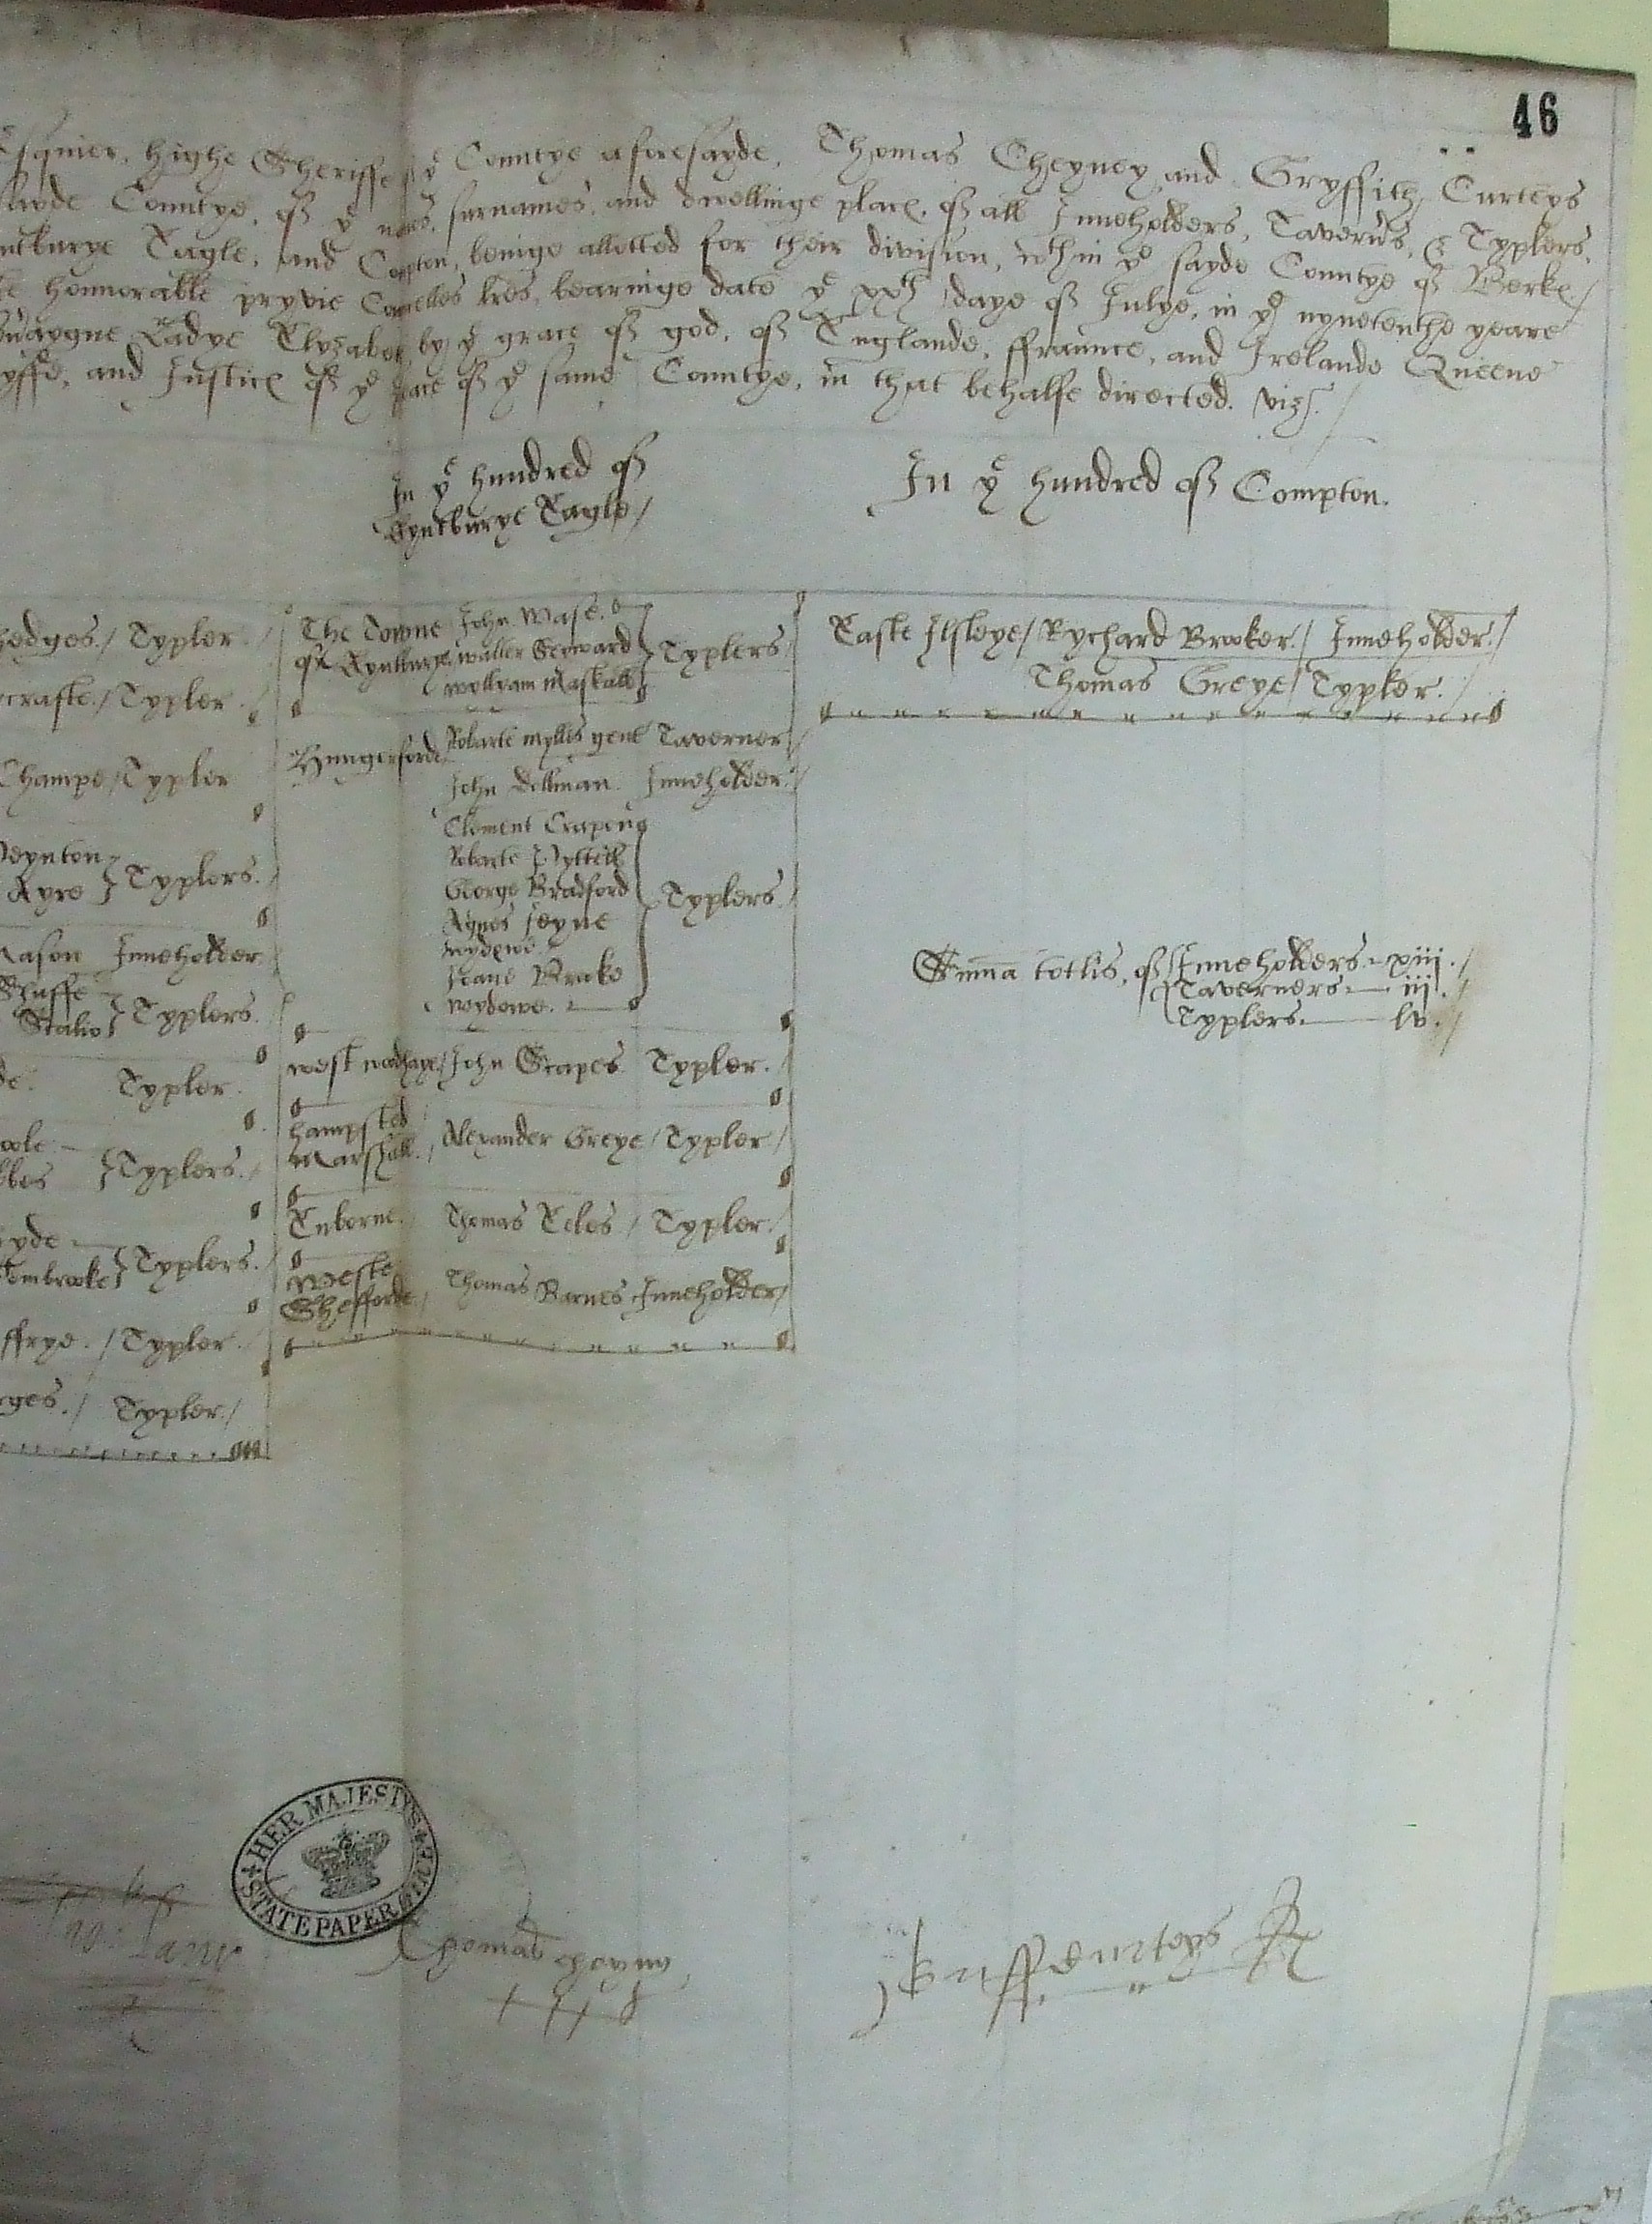 46
Esquier, highe Sheriffe of ye Countye aforesayde, Thomas Cheyney and Gryffith Curteys
sayde Countye, of ye names, surnames, and dwellinge place, of all Inneholders, Taverns, & Typlers,
Eagle, and Compton, beinge allotted for their division, wthin ye sayde Countye of Berks /
honnorable pryvie Councelles lres, bearinge date ye xxth daye of Julye, in ye nynetenthe yeare
Ladye Elyzabeth by ye grace of god, of Englande, ffraunce, and Irelande Queene
and Justices of ye peace of ye same Countye, in that behalfe directed. viz.
In ye hundred of
Kyntburye Eagle /
In ye hundred of Compton.
hedges / Typler
crafte / Typler
Champe / Typler
Peynton
Ayre } Typlers.
Mason Inneholder
Typlers
Typler.
Typlers.
yde
Pembrooke } Typlers.
ffrye. / Typler
rges. / Typler /
The Towne John Mase.
of Kyntburye walter Serward } Typlers /
wyllyam Maskall
Hungerforde Robarte mylles gent Taverner
John Dellman Inneholder
Clement Crapen
Robarte
George Bradford } Typlers
Agnes Jeyne
wydowe.
Jeane Brake
wydowe.
west woodhaye / John Scapes Typler.
hampsted
Marshall. / Alexander Greye / Typler /
Enborne. Thomas Eeles / Typler /
Weste
Shefforde / Thomas Barnes Inneholder /
Easte Ilsleye / Rychard Brooker / Inneholder /
Thomas Greye / Typler.
Summa totlis, of { Inneholders - xiii. /
Taverners - iij. /
Typlers - lv. /
HER MAJESTYS
STATE PAPER
Thomas Cheyny
Gruff Curteys